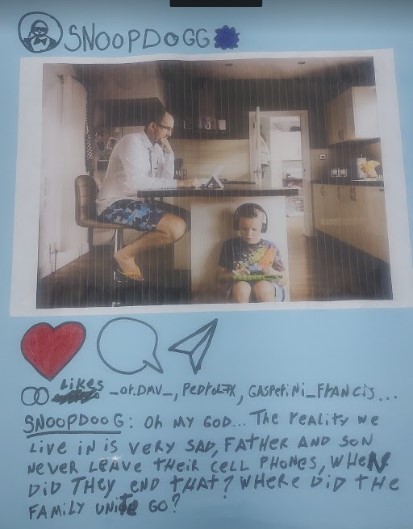 SNOOPDOGG
Likes _ot.DMV_, PedroLTX, GASPeTiNi_FTANCis...
SNOOPDOG: OH MY GOD... THE reality we
Live iN is VERY SAD, FATHER AND SON
NEVER LEAVE THEIR CELL PHONES, WHEN
DID THEY END THAT? WHERE DID THE
FAMILY UNITE GO?